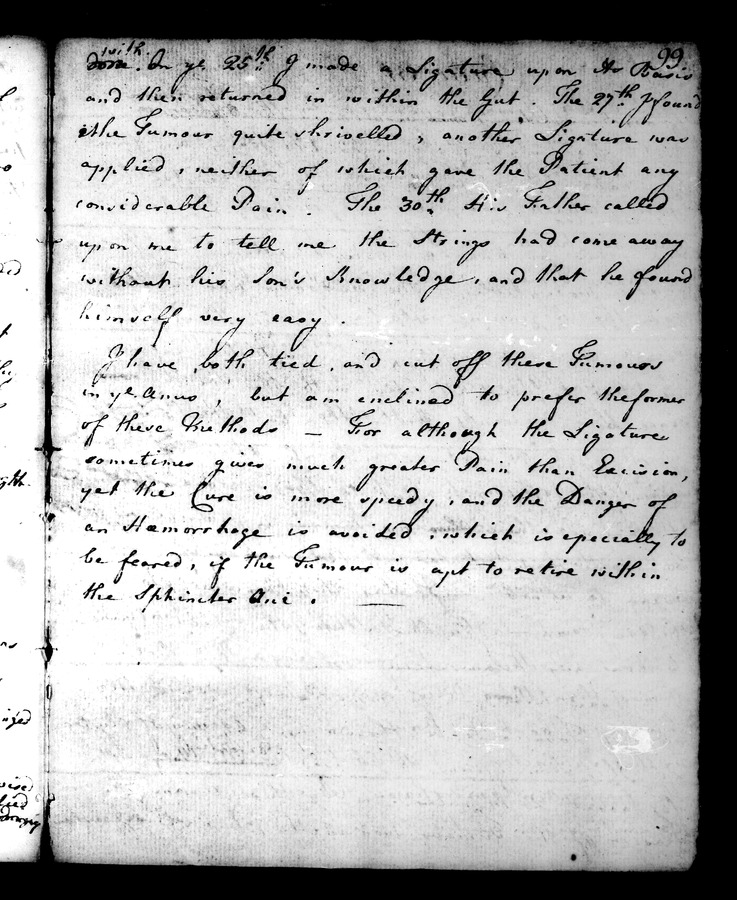 99
with.
done. On ye. 25th I made a Ligature upon its Basis
and then returned in within the Gut. The 27th I found
the Tumour quite shrivelled, another Ligature was
applied, neither of which gave the Patient any
considerable Pain. The 30th His Father called
upon me to tell me the Strings had come away
without his Son's Knowledge, and that he found
himself very easy.
I have both tied, and cut off these Tumours
in ye. Anus, but am enclined to prefer the former
of these Methods — For although the Ligature
sometimes gives much greater Pain than Excision,
yet the Cure is more speedy, and the Danger of
an Hæmorrhage is avoided, which is epecially to
be feared, if the Tumour is apt to retire within
the Sphincter Ani. —